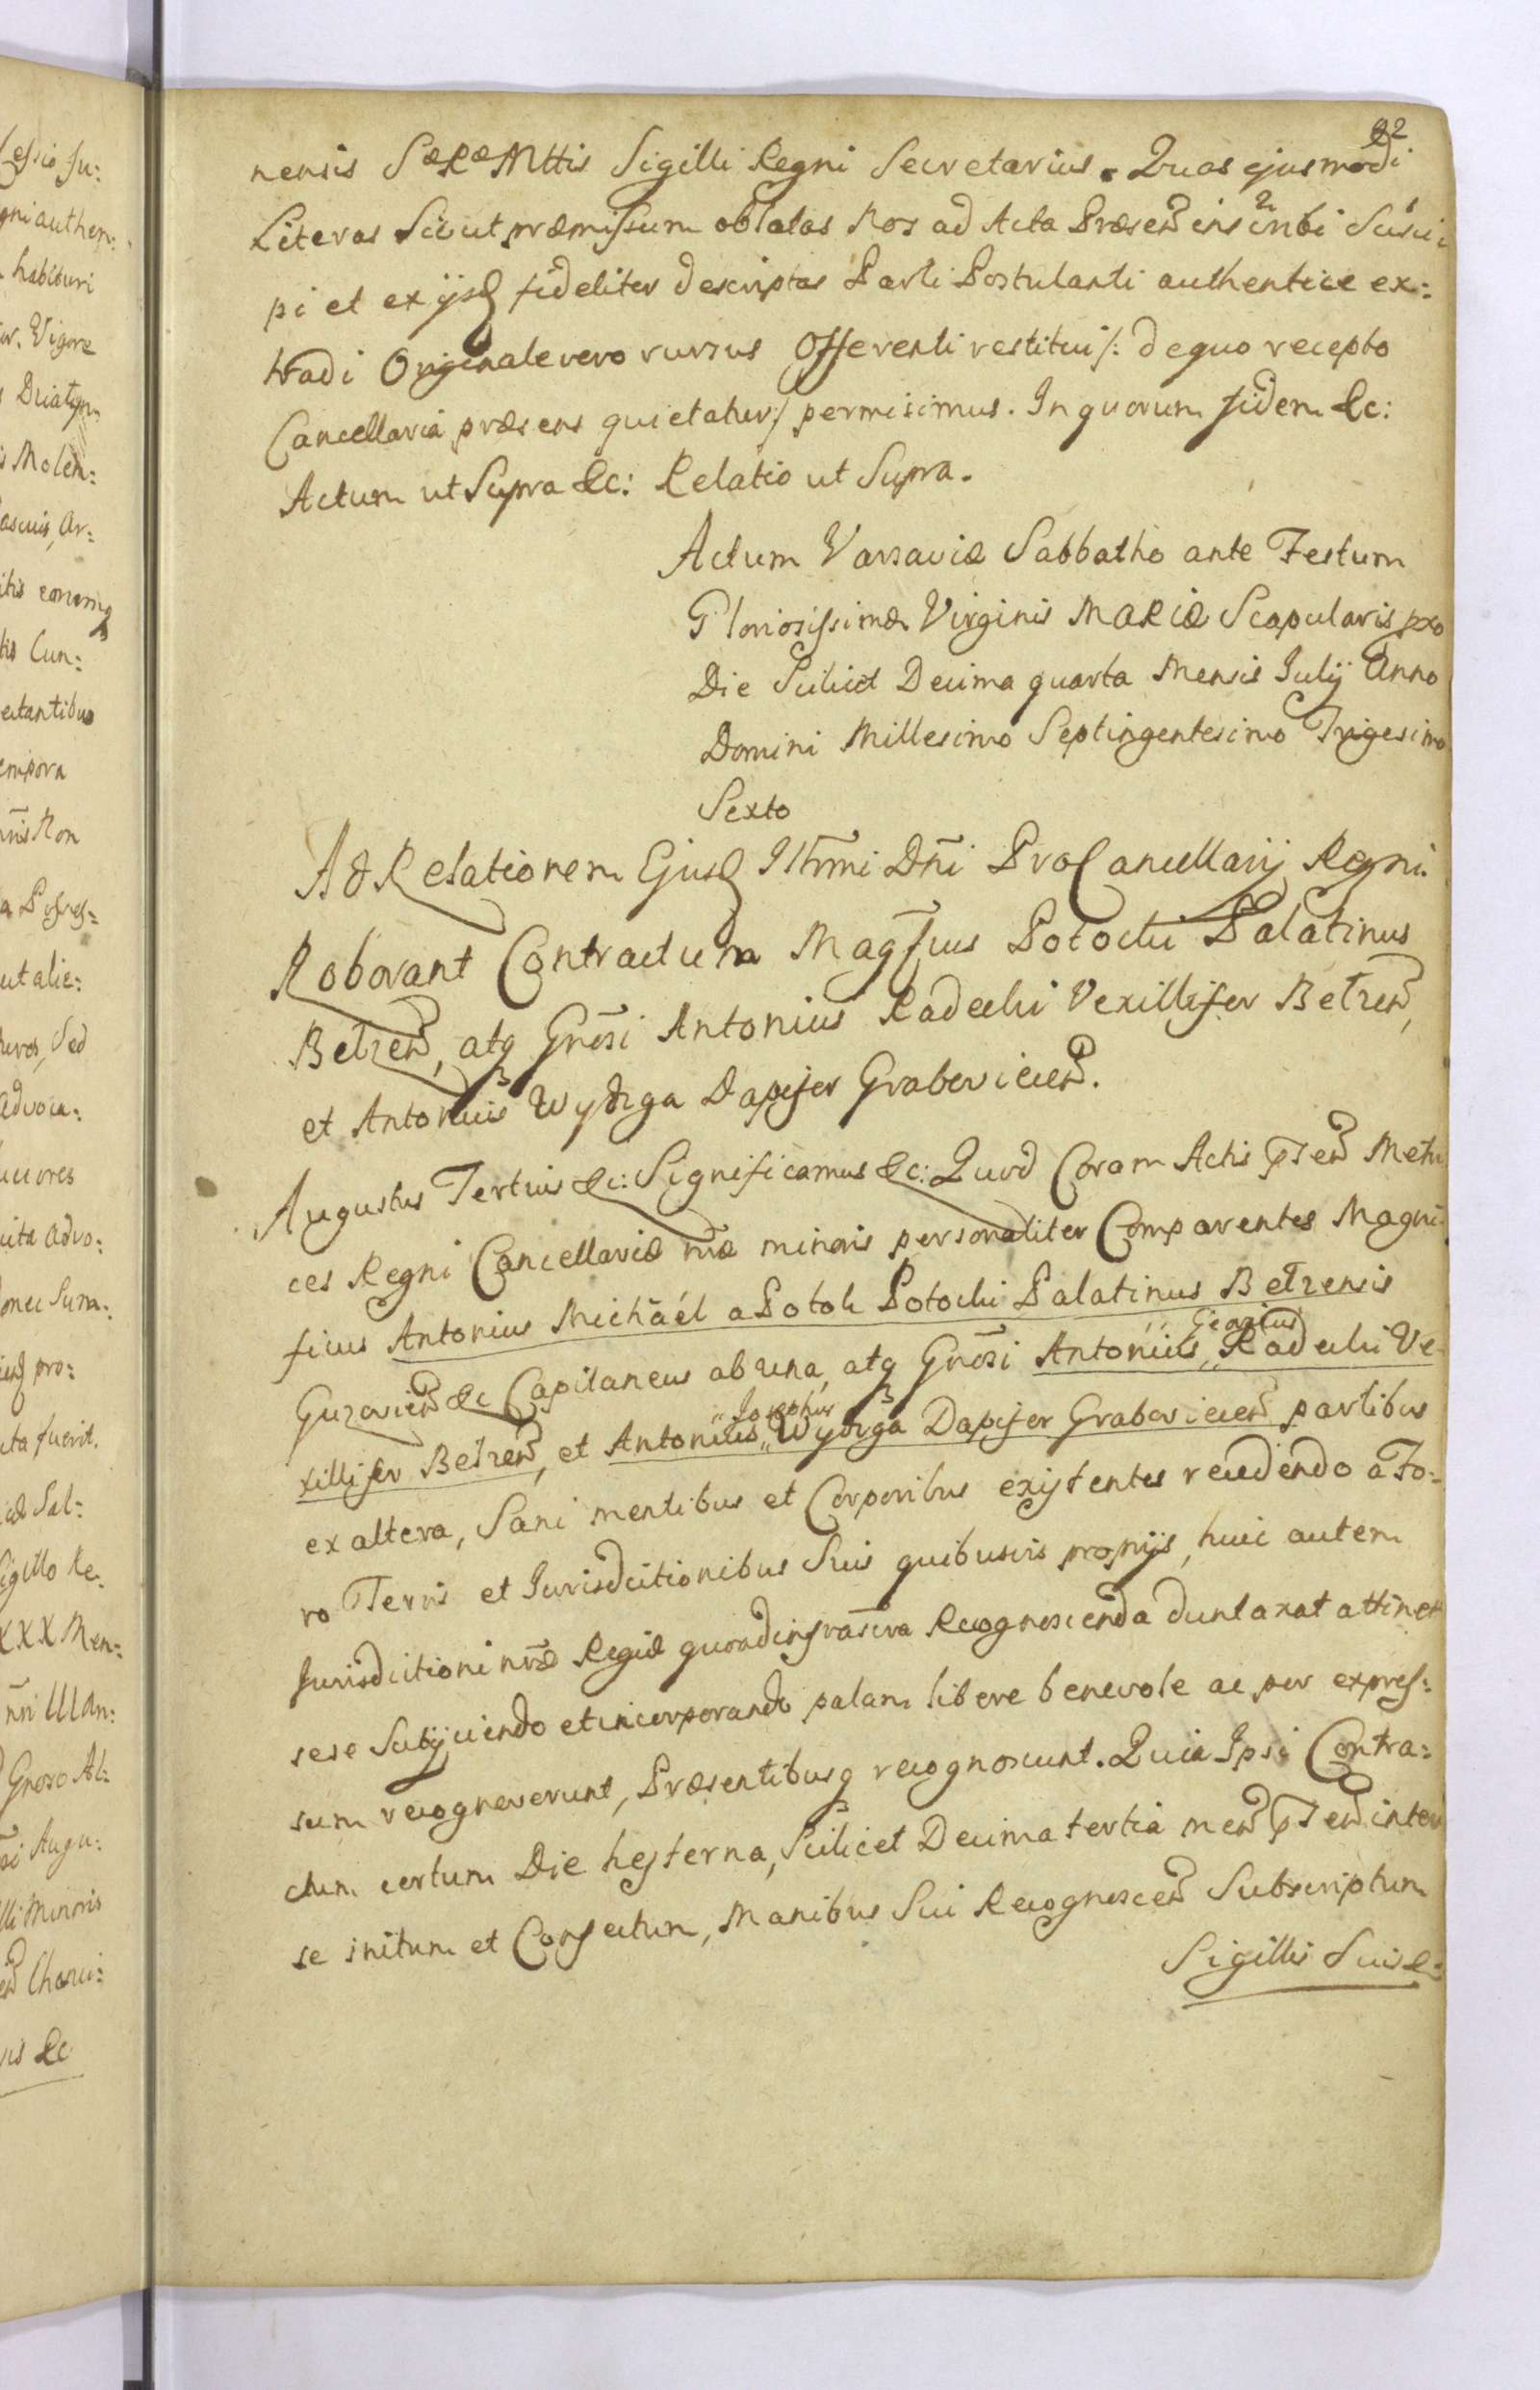 92
nensis SæRæMttis Sigilli Regni Secretarius. Quas ejusmodi
Literas Sicut præmissum oblatas Nos ad Acta Præsen ins inbi Susci
pi et ex ijsd fideliter descriptas Parti Postulanti authentice ex:
tradi Originale vero rursus Offerenti restitui /: de quo recepto
Cancellaria præsens quietatur:/ permisimus. In quorum fidem &c:
Actum ut Supra &c: Relatio ut Supra.
Actum Varsaviæ Sabbatho ante Festum
Gloriosissimæ Virginis MARIÆ Scapularis pxo
Die Scilicet Decima quarta Mensis Julij Anno
Domini Millesimo Septingentesimo Trigesimo
Sexto
Ad Relationem Ejusd Illmi Dni ProCancellarij Regni.
Roborant Contractum Magfcus Potocki Palatinus
Belzen, atq Gnosi Antonius Radecki Vexillifer Belzen,
et Antonius Wydzga Dapifer Graboviecen.
Augustus Tertius &c: Significamus &c: Quod Coram Actis pnten Metri
ces Regni Cancellariæ nræ minoris personaliter Comparentes Magni:
ficus Antonius Michaél a Potok Potocki Palatinus Belzensis
Guzovien &c Capitaneus ab una, atq Gnosi Antonius „ Ignatius Radecki Ve-
xillifer Belzen, et Antonius „ Josephus Wydzga Dapifer Graboviecen partibus
ex altera, Sani mentibus et Corporibus existentes recedendo a Fo:
ro Terris et Jurisdictionibus Suis quibusvis proprijs, huic autem
Jurisdictioni nræ Regiæ quoad infrascra Recognoscenda duntaxat attinet
sese Subijciendo et incorporando palam libere benevole ac per expres:
sum recognoverunt, Præsentibusq recognoscunt. Quia Ipsi Contra:
ctum certum Die hesterna, Scilicet Decima tertia men pnten inter
se initum et Confectum, Manibus Sui Recognoscen Subscriptum
Sigillis Suis &: